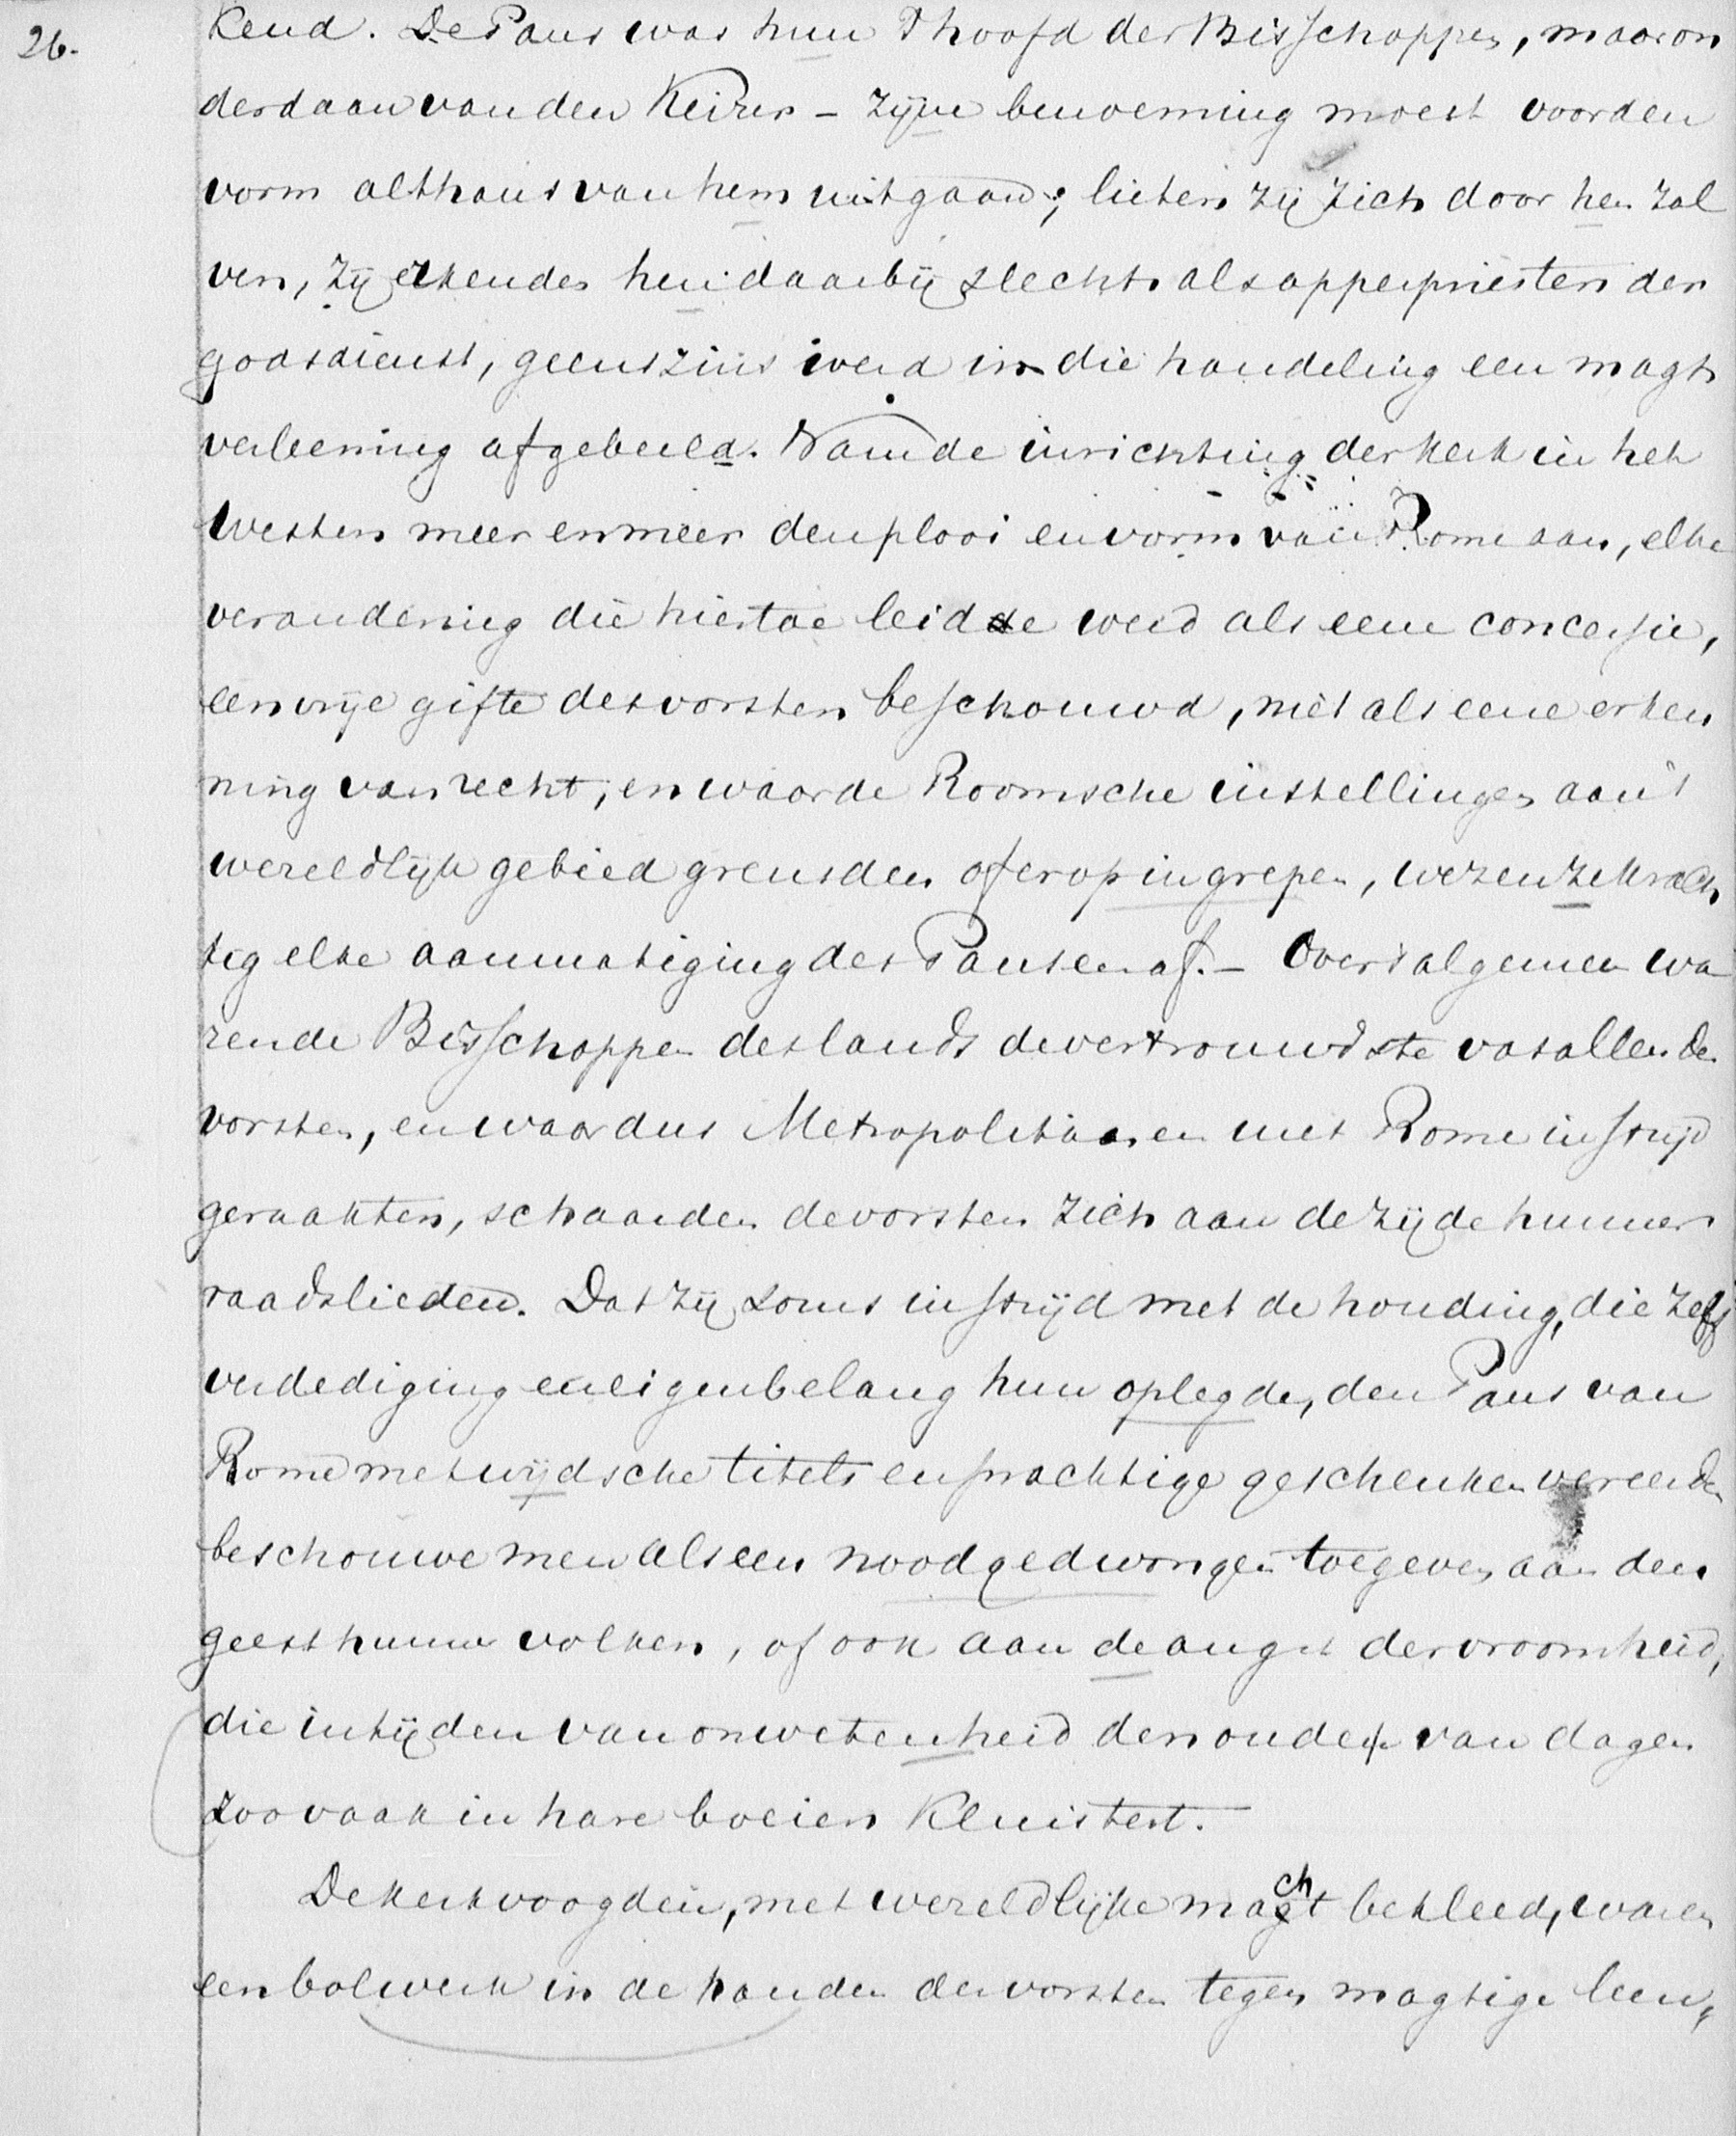 26.
kend. De Paus was hun 't hoofd der Bisschoppen, maar on
derdaan van den Keizer – zijne benoeming moest voor den
vorm althans van hem uitgaan; lieten zij zich door hen zal
ven, zij erkenden hen daarbij slechts als opperpriesters der
godsdienst, geenszins werd in die handeling een magts
verleening afgebeeld. Nam de inrichting der kerk in het
Westen meer en meer den plooi en vorm van Rome aan, elke
verandering die hiertoe leidde werd als eene concessie,
een vrije gifte des vorsten beschouwd, niet als eene erken
ning van recht, en waar de Roomsche instellingen aan 't
wereldlijk gebied grensden of er op ingrepen, wezen ze krach
tig elke aanmatiging des Pausen af. – Over 't algemeen wa
ren de Bisschoppen des lands de vertrouwdste vasallen der
vorsten, en waar dus Metropolitanen met Rome in strijd
geraakten, schaarden de vorsten zich aan de zijde hunner
raadslieden. Dat zij soms in strijd met de houding, die zelfs
verdediging en eigenbelang hun oplegde, den Paus van
Rome met wijdsche titels en prachtige geschenken vereerden
beschouwe men als een noodgedwongen toegeven aan den
geest hunner volken, of ook aan de angst der vroomheid,
die in tijden van onwetenheid den ouden van dagen
zoo vaak in hare boeien kluistert.
De kerkvoogden, met wereldlijke macht bekleed, waren
een bolwerk in de handen der vorsten tegen magtige leen,